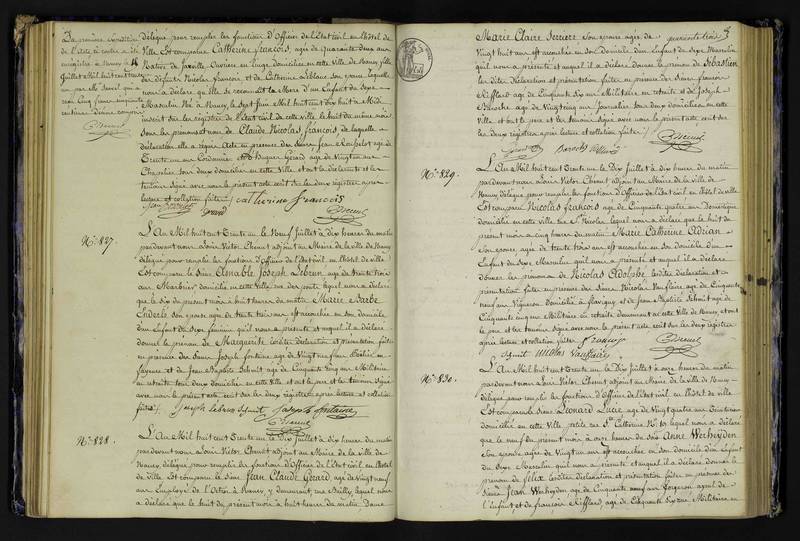 La première condition
de l'acte ci contre a été
enregistrée à Nancy le
Juillet Mil huit cent trente un
par elle Savoir qui a
reçu Cinq francs cinquante
centimes dixième compris
délégué pour remplir les fonctions d'Officier de l'Etat civil en l'hôtel de
Ville Est comparue Catherine François, agée de Quarante Deux ans
Native de Juville Ouvrière en linge domiciliée en cette Ville de Nancy fille
des défunts Nicolas François, et de Catherine Leblanc son épouse laquelle
nous a déclaré qu'elle se reconnait la Mère d'un Enfant du Sexe
Masculin Né à Nancy, le Sept Juin Mil huit cent Dix huit à Midi
inscrit sur les registres de l'Etat civil de cette ville le huit du même mois
sous les prénoms et nom de Claude Nicolas François, de laquelle
déclaration elle a requis Acte en présence des Sieurs Jean
trente un ans Cordonnier et Hugues Gérard agé de Vingt un ans
Chapelier tous deux domiciliés en cette Ville et ont la déclarante et les
témoins Signé avec nous le présent acte écrit sur les deux registres après
lecture et collation faites
Catherine François
N° 827.
L'An Mil huit cent Trente un le Neuf Juillet à dix heures du matin
pardevant nous Louis Victor Chenut adjoint au Maire de la ville de Nancy
délégué pour remplir les fonctions d'Officier de l'Etat civil en l'hôtel de ville
Est comparu le Sieur Amable Joseph Lebrun agé de trente trois
ans Marbrier domicilié en cette Ville rue des ponts lequel nous a déclaré
que le Six du présent mois à huit heures du matin Marie Barbe
Enderlé son épouse agée de trente trois ans est accouchée en son domicile
d'un Enfant du Sexe féminin qu'il nous a présenté et auquel il a déclaré
donner le prénom de Marguerite lesdites déclaration et présentation faites
en présence des Sieurs Joseph fontaine agé de Vingt neuf ans
fayence et de Jean Baptiste Schmit agé de Cinquante Cinq ans Militaire
en retraite tous deux domiciliés en cette ville et ont le père et les témoins Signé
avec nous le présent acte écrit sur les deux registres après lecture et collation
faites Joseph Lebrun Schmit Joseph fontaine
N° 828.
L'An Mil huit cent Trente un le Dix Juillet à dix heures du matin
pardevant nous Louis Victor Chenut adjoint au Maire de la ville de
Nancy délégué pour remplir les fonctions d'Officier de l'Etat civil en l'hôtel
de ville Est comparu le Sieur Jean Claude Gérard agé de Vingt neuf
ans Employé de l'Octroi à Nancy y demeurant rue Bailly lequel nous
a déclaré que le huit du présent mois à huit heures du matin Dame
Marie Claire Ferrière Son épouse agée de
Vingt huit ans est accouchée en Son Domicile d'un Enfant du Sexe Masculin
qu'il nous a présenté et auquel il a déclaré donner le prénom de Sébastien
les dites Déclaration et présentation faites en présence des Sieurs françois
Rifflard agé de Cinquante Six ans Militaire en retraite et de Joseph
Baroche agé de Vingt cinq ans Journalier tous deux domiciliés en cette
Ville et ont le père et les témoins Signé avec nous le présent acte écrit sur
les deux registres après lecture et collation faites
N° 829.
L'An Mil huit cent Trente un le Dix Juillet à dix heures du matin
pardevant nous Louis Victor Chenut adjoint au Maire de la Ville de
Nancy délégué pour remplir les fonctions d'Officier de l'Etat civil en l'hôtel de ville
Est comparu Nicolas François agé de Cinquante quatre ans Domestique
domicilié en cette ville rue St Nicolas lequel nous a déclaré que le huit du
présent mois à cinq heures du matin Marie Catherine Adrian
Son épouse agée de trente trois ans est accouchée en Son domicile d'un
Enfant du Sexe Masculin qu'il nous a présenté et auquel il a déclaré
donner les prénoms de Nicolas Adolphe lesdites déclaration et
présentation faites en présence des Sieurs Nicolas Vautfaire agé de Cinquante
neuf ans Vigneron domicilié à flavigny et de Jean Baptiste Schmit agé de
Cinquante cinq ans Militaire en retraite demeurant en cette Ville de Nancy et ont
le père et les témoins Signé avec nous le présent acte écrit sur les deux registres
après lecture et collation faites françois
Schmit Nicolas Vautfaire
N° 830.
L'An Mil huit cent Trente un le Dix Juillet à onze heures du matin
pardevant nous Louis Victor Chenut adjoint au Maire de la ville de Nancy
délégué pour remplir les fonctions d'Officier de l'Etat civil en l'hôtel de ville
Est comparu le Sieur Léonard Lucre agé de Vingt quatre ans
domicilié en cette Ville petite rue Ste Catherine N° 10 lequel nous a déclaré
que le neuf du présent mois à onze heures du soir Anne Werheyden
Son épouse agée de Vingt un ans est accouchée en Son domicile d'un Enfant
du Sexe Masculin qu'il nous a présenté et auquel il a déclaré donner le
prénom de félix lesdites déclaration et présentation faites en présence des
Sieurs Jean Werheyden agé de Cinquante neuf ans forgeron ayeul de
l'Enfant et de françois Rifflard agé de Cinquante Six ans Militaire en